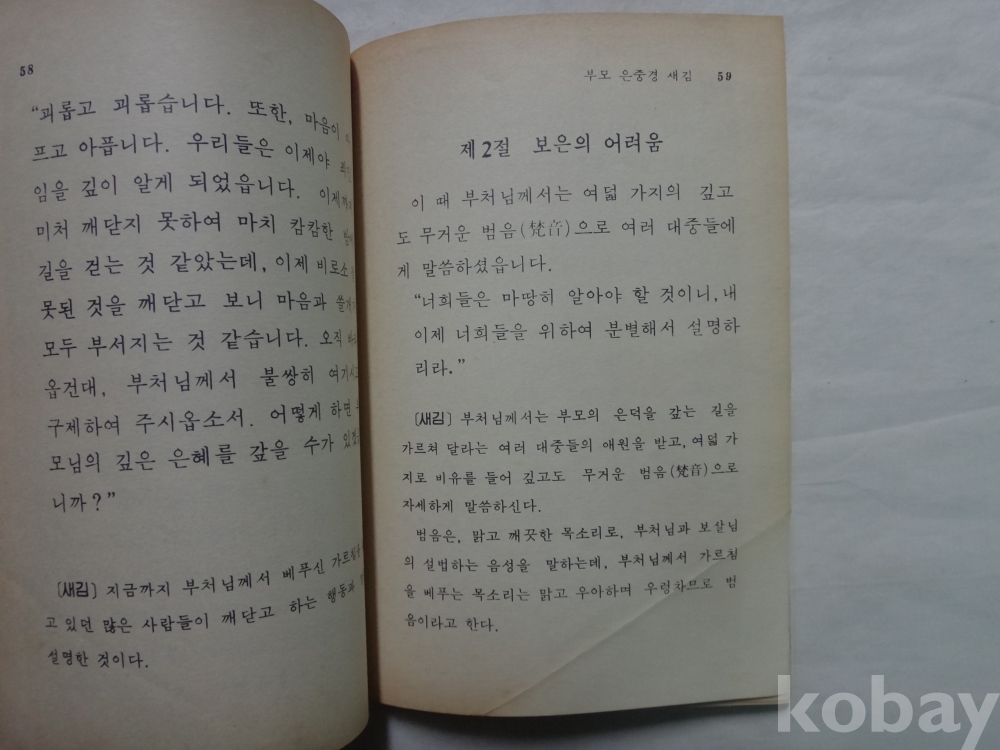 58
“괴롭고 괴롭습니다. 또한, 마음이
프고 아픕니다. 우리들은 이제야
임을 깊이 알게 되었읍니다.
미처 깨닫지 못하여 마치 캄캄한
길을 걷는 것 같았는데, 이제 비로소
못된 것을 깨닫고 보니 마음과
모두 부서지는 것 같습니다. 오직
옵건대, 부처님께서 불쌍히
구제하여 주시옵소서. 어떻게 하면
모님의 깊은 은혜를 갚을 수가
니까?”
〔새김〕 지금까지 부처님께서 베푸신
고 있던 많은 사람들이 깨닫고 하는 행동과
설명한 것이다.
부모 은중경 새김 59
제 2절 보은의 어려움
이 때 부처님께서는 여덟 가지의 깊고
도 무거운 범음(梵音)으로 여러 대중들에
게 말씀하셨읍니다.
“너희들은 마땅히 알아야 할 것이니, 내
이제 너희들을 위하여 분별해서 설명하
리라.”
〔새김〕 부처님께서는 부모의 은덕을 갚는 길을
가르쳐 달라는 여러 대중들의 애원을 받고, 여덟 가
지로 비유를 들어 깊고도 무거운 범음(梵音)으로
자세하게 말씀하신다.
범음은, 맑고 깨끗한 목소리로, 부처님과 보살님
의 설법하는 음성을 말하는데, 부처님께서 가르침
을 베푸는 목소리는 맑고 우아하며 우렁차므로 범
음이라고 한다.
kobay